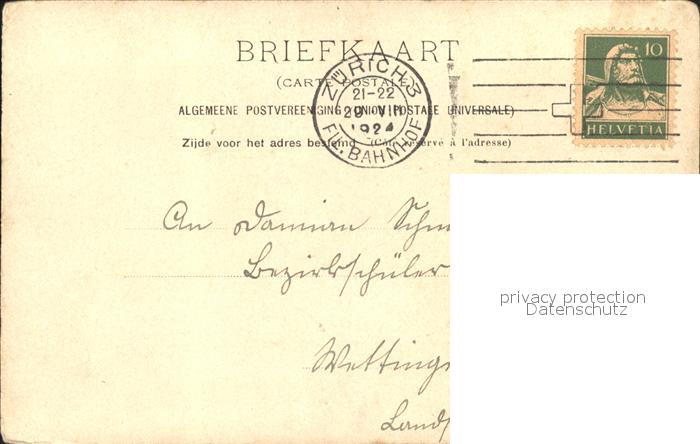 BRIEFKAART
(CARTE POSTALE)
ALGEMEENE POSTVEREENIGING (UNION POSTALE UNIVERSELLE)
Zijde voor het adres bestemd. (Côté réservé à l'adresse)
ZÜRICH 3
21-22
29. VIII
1924
FIL. BAHNHOF
10
HELVETIA
An Damian Schm
Bezirksschüler
Wettings
Land
privacy protection
Datenschutz